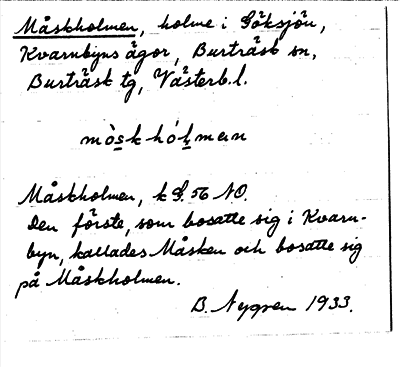 Måskholmen, holme i Göksjön,
Kvarnbyns ägor, Burträsk sn,
Burträsk tg, Västerb. l.
mò̀skhólmen
Måskholmen, k G. 56 NO.
Den förste, som bosatte sig i Kvarn-
byn, kallades Måsken och bosatte sig
på Måskholmen.
B. Nygren 1933.